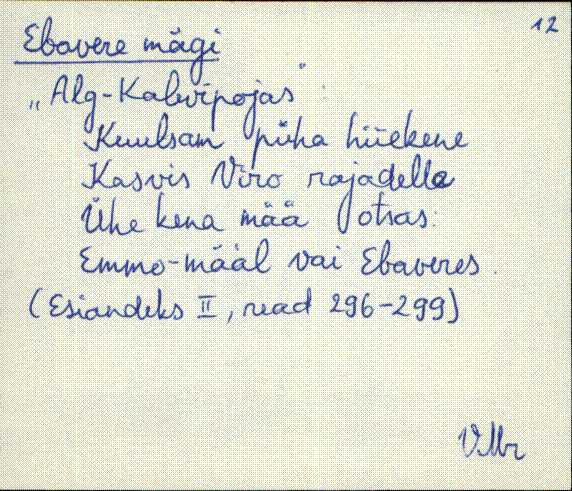 12
Ebavere mägi
„Alg-Kalevipojas":
Kuulsam püha hiiekene
Kasvis Viro rajadella
Ühe kena mää otsas:
Emmo-määl vai Ebaveres.
(Esiandeks II, read 296-299)
VMr